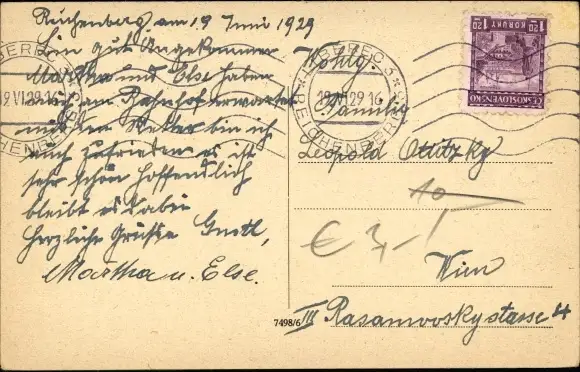 Reichenberg am 19 Juni 1929
Bin gut Angekommen
Martha und Else haben
mich am Bahnhof erwartet
mit den Wetter bin ich
auch zufrieden es ist
sehr schön Hoffendlich
bleibt es dabei
Herzliche Grüsse
Martha u. Else.
Wohlg.
Familie
Leopold Ottitzky
10
€ 3,-
Wien
III Rasamovskystasse 4
7498/6
LIBEREC 3
19.VI.29.16
REICHENBERG
BEREC 3
19.VI.29.16
CHENB
1.20 KORUNY 1.20
ČESKOSLOVENSKO